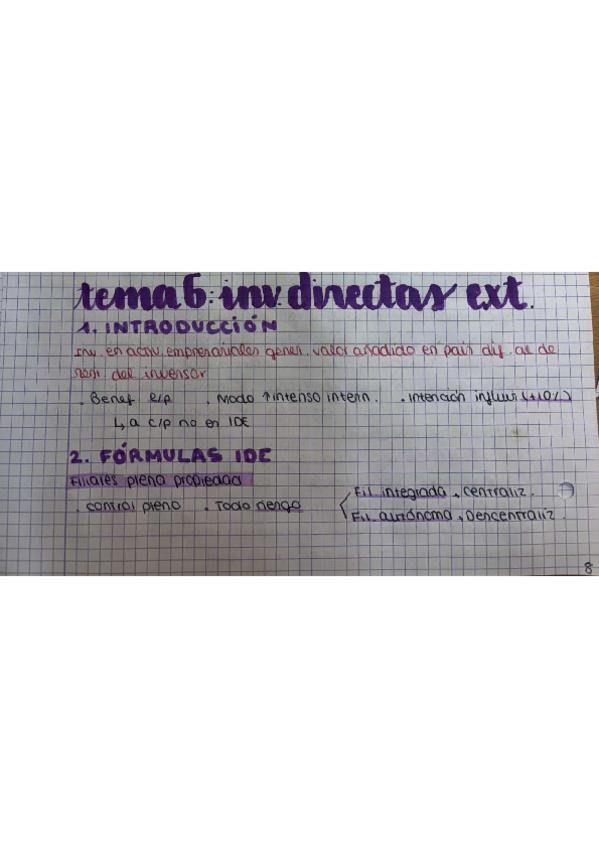 tema 6: inv. directas ext.
1. INTRODUCCIÓN
Inv. en activ. empresariales gener. valor añadido en país dif. al de
resi. del inversor
. Benef l/p . Modo ↑ intenso intern. . intención influir (+10%)
↳ a c/p no es IDE
2. FÓRMULAS IDE
Filiales plena propiedad
. control pleno . Todo riesgo
Fil integrada, centraliz.
Fil autónoma, Descentraliz.
8